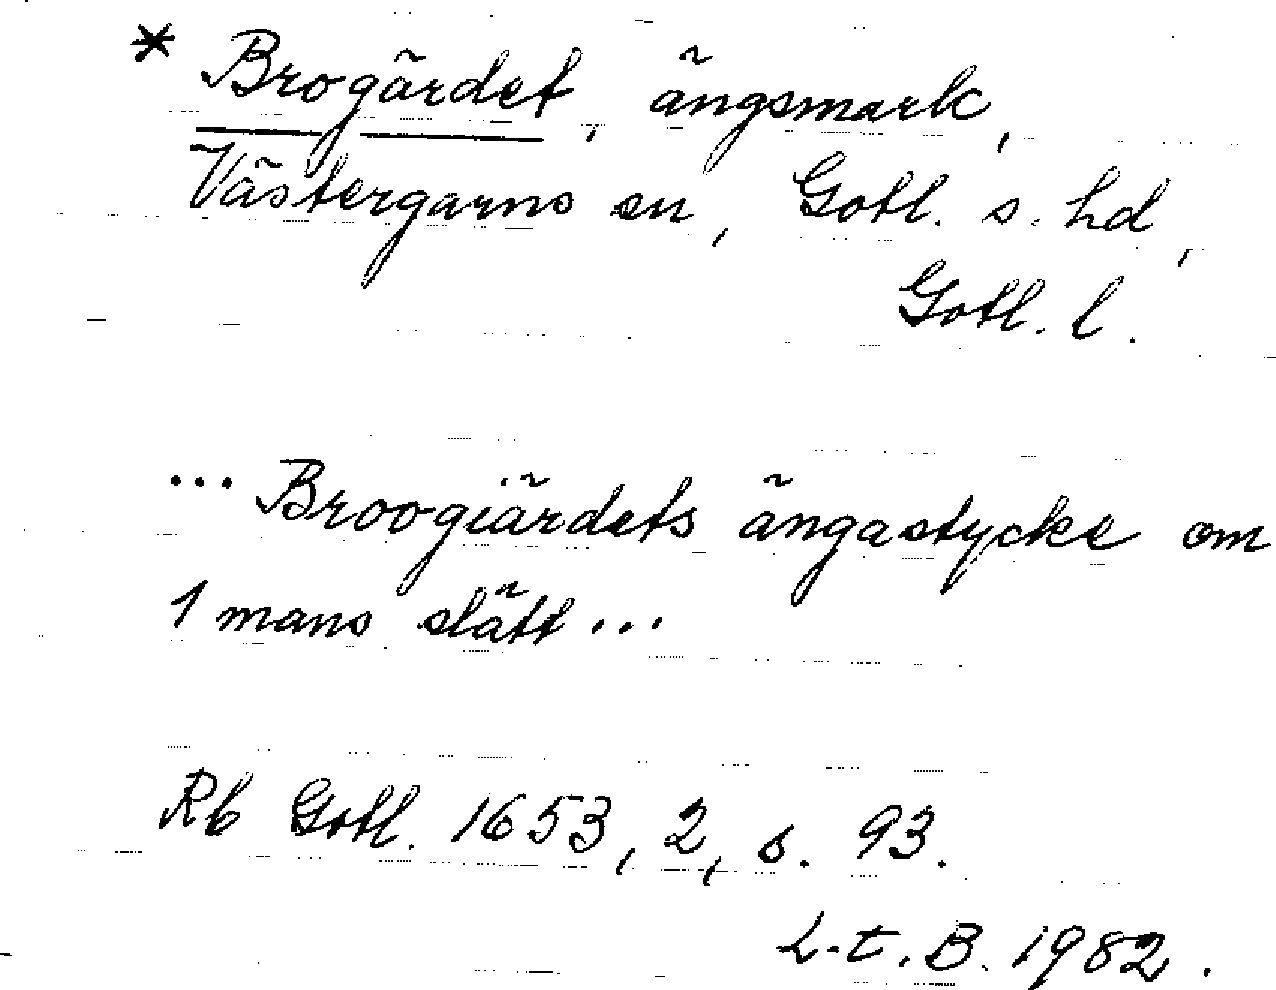 * Brogärdet, ängsmark,
Västergarns sn, Gotl. s. hd,
Gotl. l.
... Broogiärdets ängastycke om
1 mans slätt ...
Rb Gotl. 1653, 2, s. 93.
L-t. B. 1982.